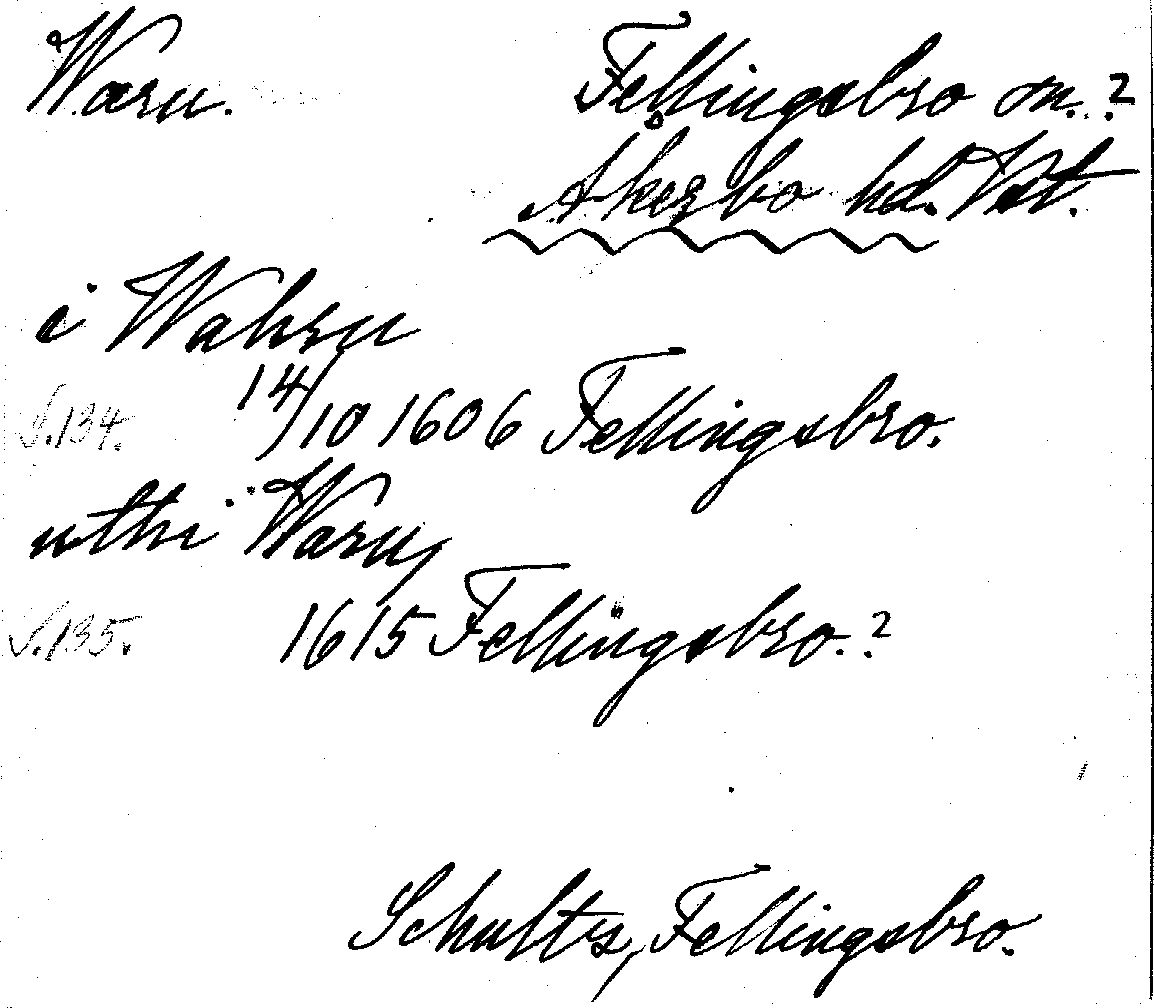 Waru. Fellingsbro sn.?
Åkerbo hd. Vstl.
i Wahru
S.134. 14/10 1606 Fellingsbro.
uthi Waru,
S.135. 1615 Fellingsbro.?
Schultz, Fellingsbro.